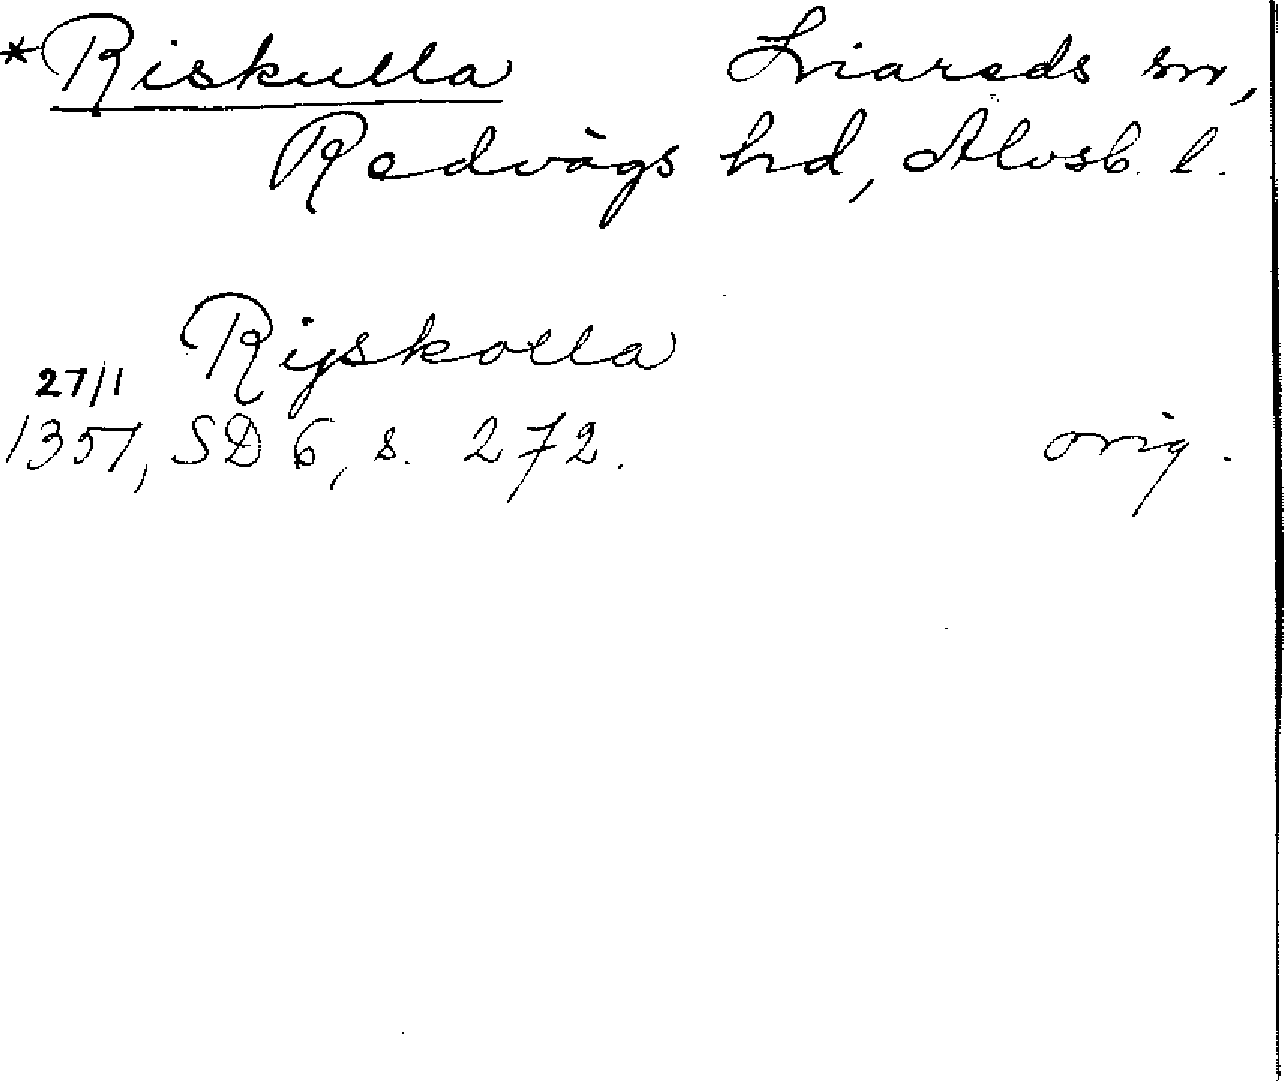 *Riskulla Liareds sn,
Redvägs hd, Älvsb. l.
Rijskolla
27/1
1351, SD 6, s. 272. orig.